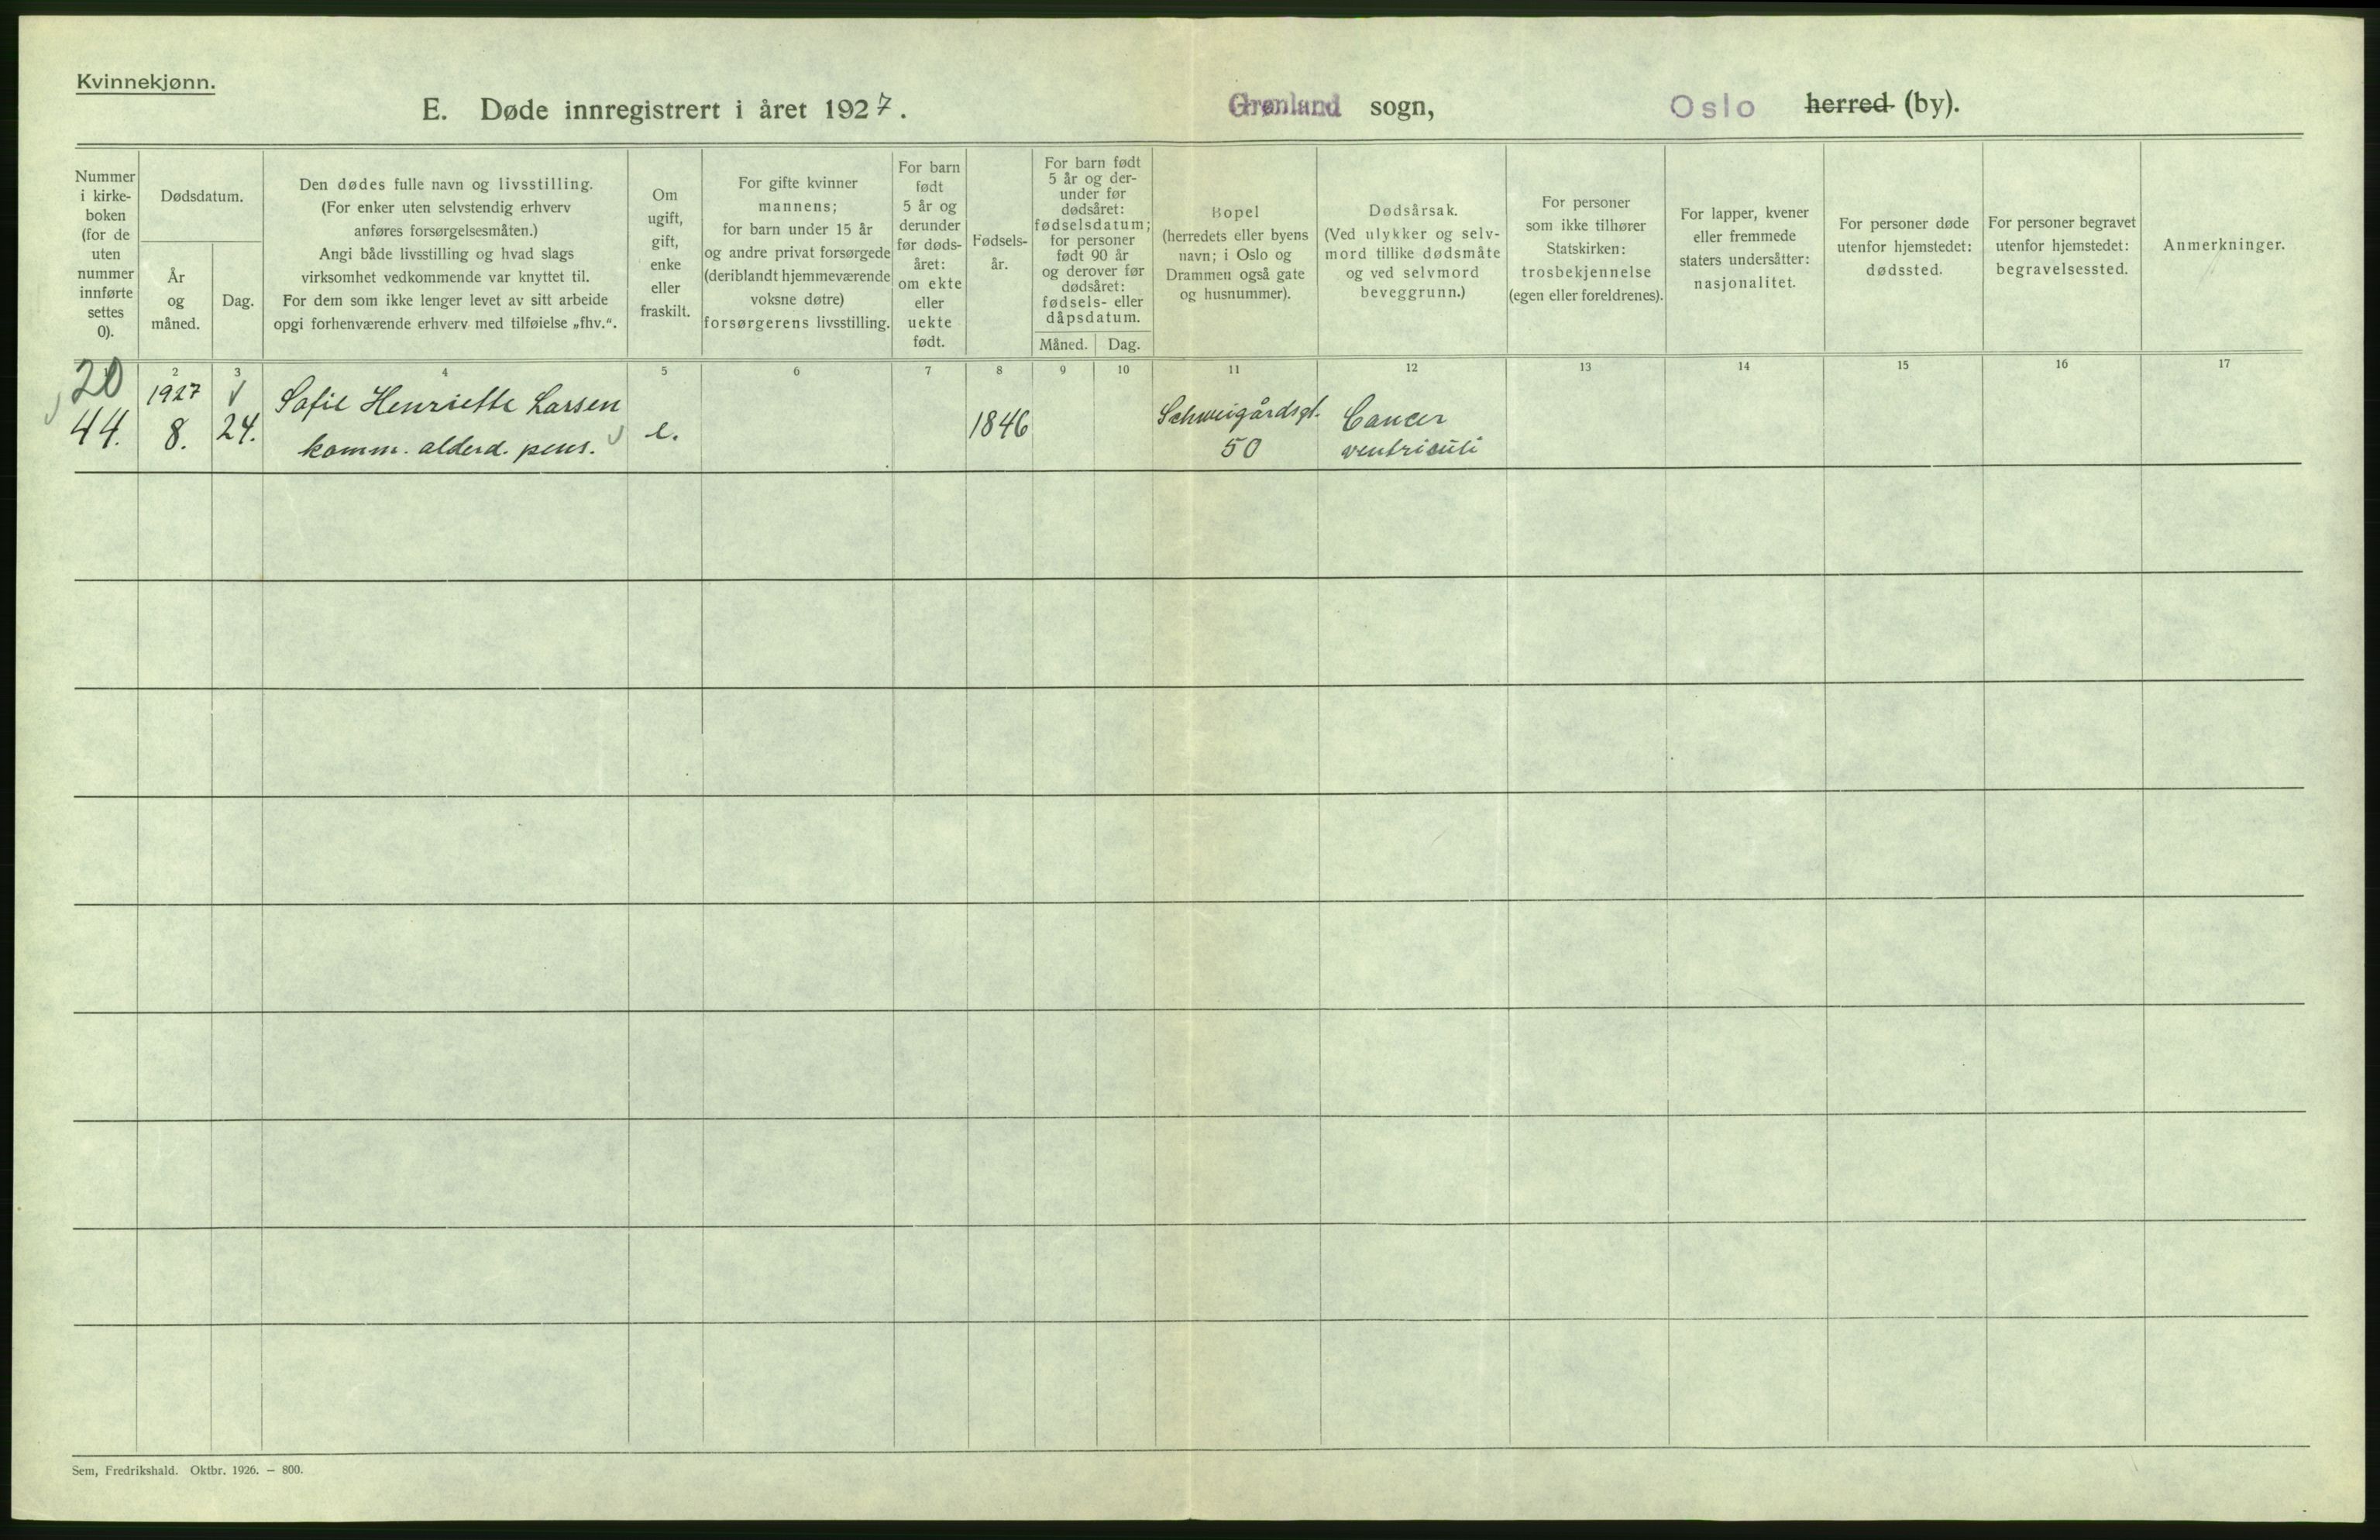 Kvinnekjønn.
E. Døde innregistrert i året 1927.
Grønland sogn,
Oslo herred (by).
Nummer
i kirke-
boken
(for de
uten
nummer
innførte
settes
0).
Dødsdatum.
År
og
måned.
Dag.
Den dødes fulle navn og livsstilling.
(For enker uten selvstendig erhverv
anføres forsørgelsesmåten.)
Angi både livsstilling og hvad slags
virksomhet vedkommende var knyttet til.
For dem som ikke lenger levet av sitt arbeide
opgi forhenværende erhverv med tilføielse „fhv.“.
Om
ugift,
gift,
enke
eller
fraskilt.
For gifte kvinner
mannens;
for barn under 15 år
og andre privat forsørgede
(deriblandt hjemmeværende
voksne døtre)
forsørgerens livsstilling.
For barn
født
5 år og
derunder
før døds-
året:
om ekte
eller
uekte
født.
Fødsels-
år.
For barn født
5 år og der-
under før
dødsåret:
fødselsdatum;
for personer
født 90 år
og derover før
dødsåret:
fødsels- eller
dåpsdatum.
Måned. Dag.
Bopel
(herredets eller byens
navn; i Oslo og
Drammen også gate
og husnummer).
Dødsårsak.
(Ved ulykker og selv-
mord tillike dødsmåte
og ved selvmord
beveggrunn.)
For personer
som ikke tilhører
Statskirken:
trosbekjennelse
(egen eller foreldrenes).
For lapper, kvener
eller fremmede
staters undersåtter:
nasjonalitet.
For personer døde
utenfor hjemstedet:
dødssted.
For personer begravet
utenfor hjemstedet:
begravelsessted.
Anmerkninger.
2 3 4 5 6 7 8 9 10 11 12 13 14 15 16 17
20 1927 Sofie Henriette Larsen Schweigårdsgt. Cancer
44. 8. 24. komm. alderd. pens. e. 1846 50 ventriculi
Sem, Fredrikshald. Oktbr. 1926. — 800.